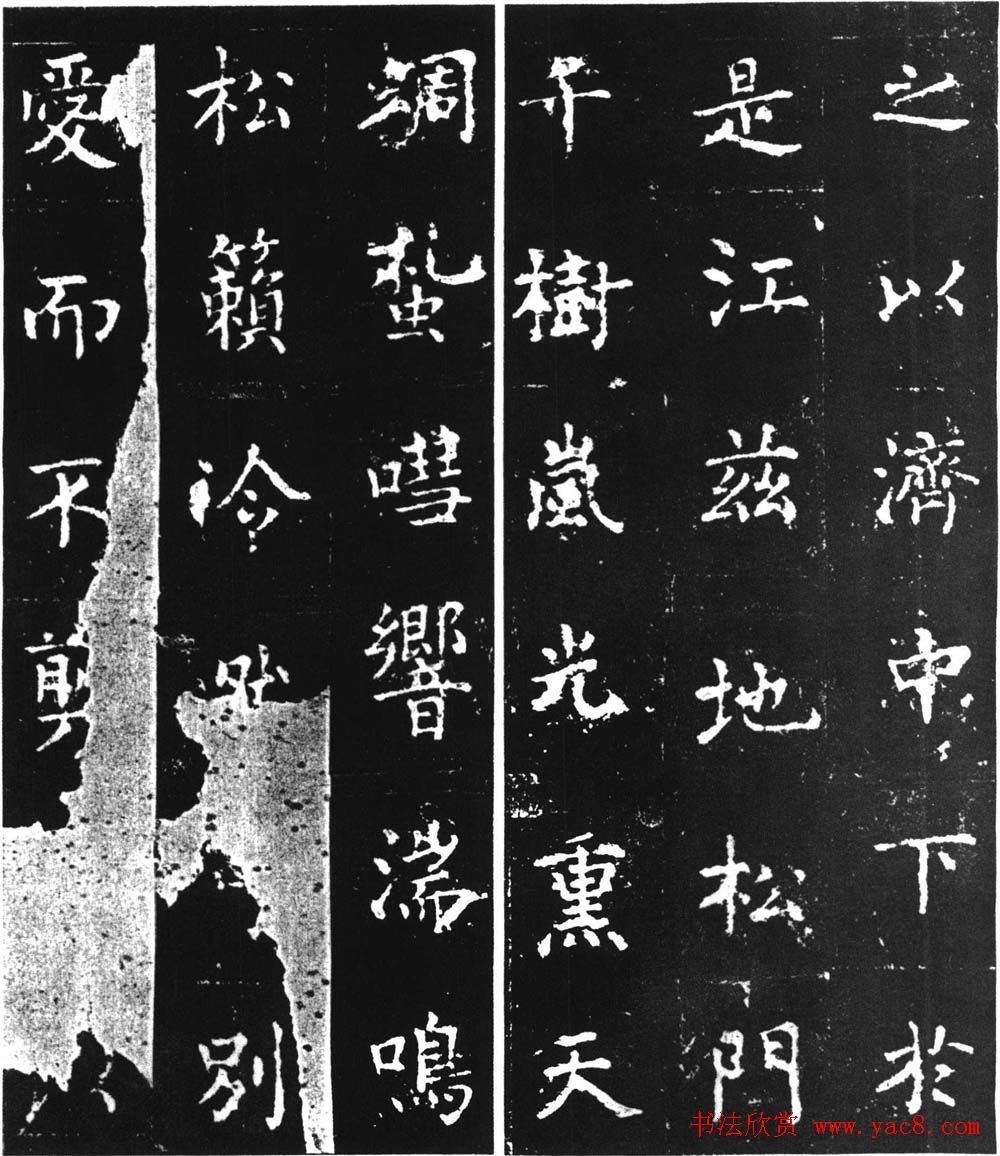 之以濟下於
是江茲地松門
千樹嵐光熏天
蜩蚻嘒響湍鳴
松籟泠然別
愛而不剪
书法欣赏 www.yac8.com